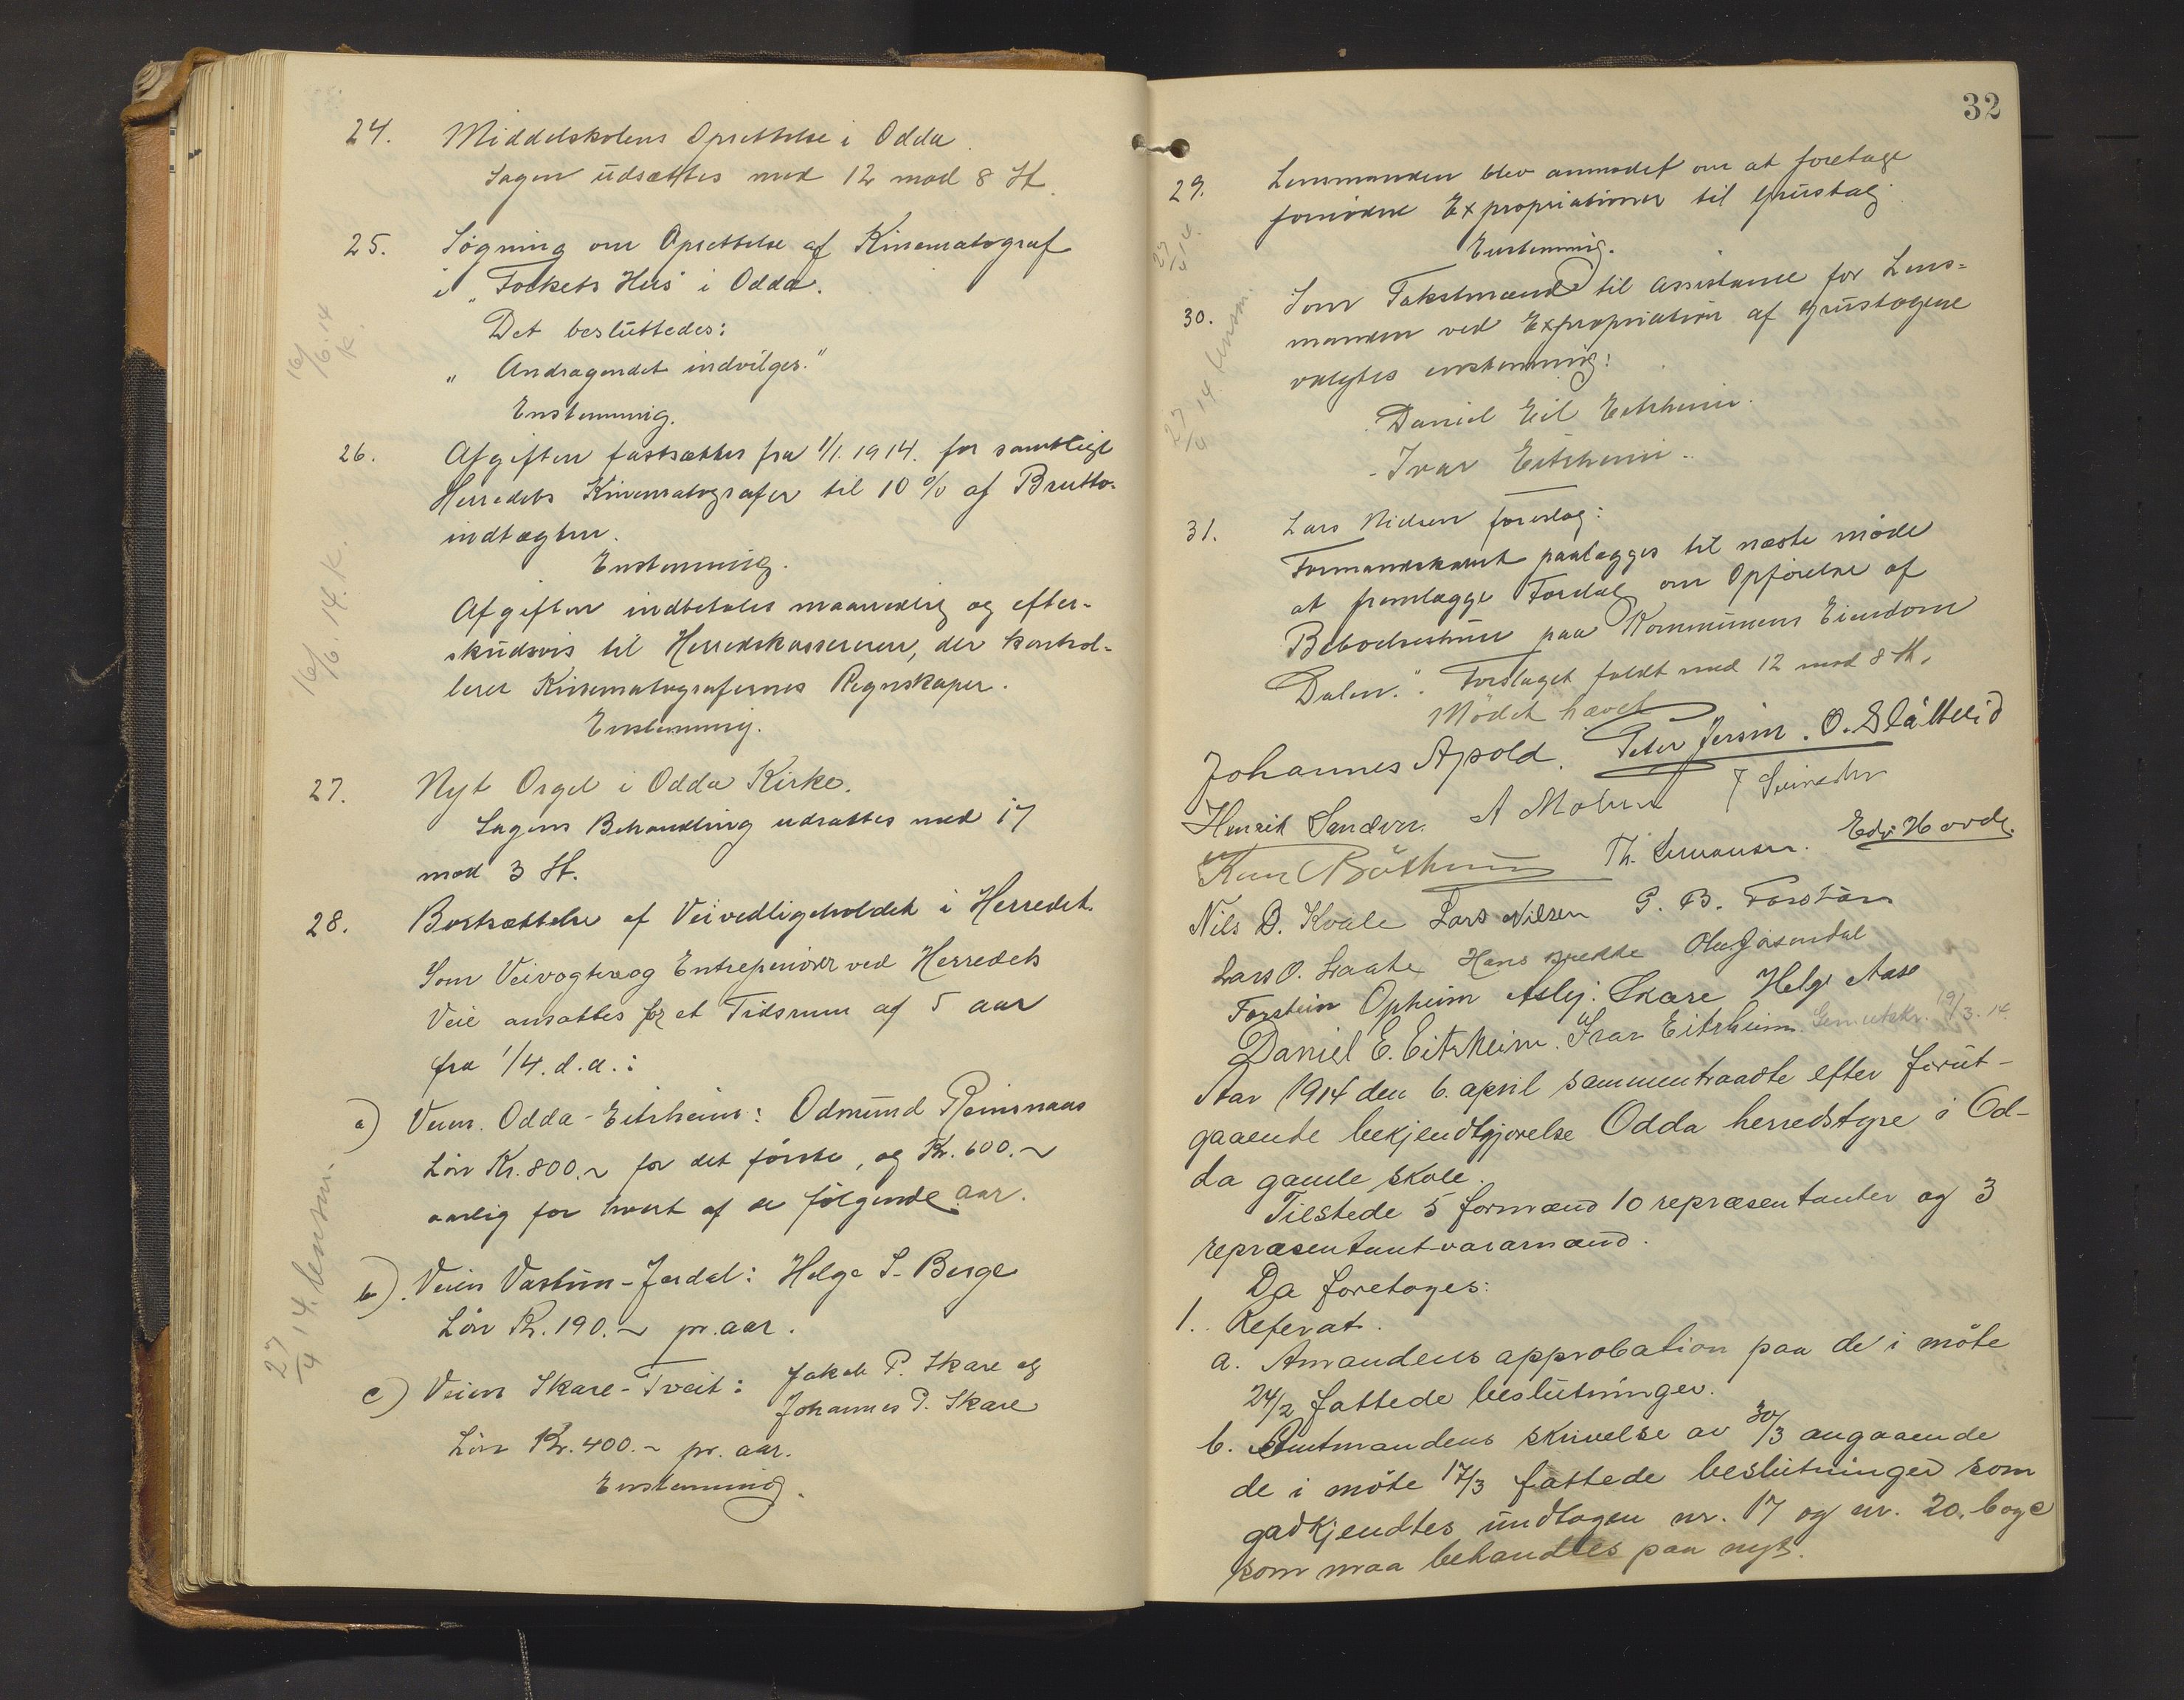 24. Middelskolens Oprettelse i Odda.
Sagen udsættes med 12 mod 8 St.
25. Søgning om Oprettelse af Kinematograf
i "Folkets Hus" i Odda.
Det besluttedes:
"Andragendet indvilges."
Enstemmig.
16/6.14 K.
26. Afgiften fastsættes fra 1/1. 1914. for samtlige
Herredets Kinematografer til 10 % af Brutto-
indtægten.
Enstemmig.
Afgiften indbetales maanedlig og efter-
skudsvis til Herredskassereren, der kontrol-
lerer Kinematografernes Regnskaper.
Enstemmig.
16/6.14. K.
27. Nyt Orgel i Odda Kirke.
Sagens Behandling udsættes med 17
mod 3 St.
28. Bortsættelse af Veivedligeholdet i Herredet.
Som Veivogtere og Entreprenører ved Herredets
Veie ansattes for et Tidsrum af 5 aar
fra 1/4. d.a.:
a) Veien Odda-Eitrheim: Odmund Reinsnaas
Løn Kr. 800.~ for det første, og Kr. 600.~
aarlig for hvert af de følgende aar.
b). Veien Vastun-Jordal: Helge S. Berge
Løn Kr. 190.~ pr. aar.
c) Veien Skare-Tveit: Jakob P. Skare og
Johannes P. Skare
Løn Kr. 400.~ pr. aar.
Enstemmig.
27/4 14. lensm.
32
29. Lensmanden blev anmodet om at foretage
fornødne Expropriationer til Grustag
Enstemmig.
27/4 14.
30. Som Takstmænd til Assistanse for Lens-
manden ved Expropriation af Grustagene
valgtes enstemmig:
Daniel Eil Eitrheim.
- Ivar Eitrheim.
27/4 14. lensm.
31. Lars Nielsen foreslog:
Formandskabet paalægges til næste møde
at fremlægge Forslag om Opførelse af
Beboelseshuse paa Kommunens Eiendom
Dalen.". Forslaget faldt med 12 mod 8 St.
Mødet hævet
Johannes Apold. Peter Jersin. O. Slåttelid
Henrik Sandven. A Molven
Knu Th. Edv. Hovde.
Nils D. Kvale Lars Nilsen G. B.
Lars O. Laate Hans Brekke Olav Jøsendal
Torstein Opheim Aslej. Skare Helge Aase
Daniel E. Eitrheim. Ivar Eitrheim. Gen.utskr. 19/3. 14.
Aar 1914 den 6. april sammentraadte efter forut-
gaaende bekjendtgjørelse Odda herredstyre i Od-
da gamle skole.
Tilstede 5 formænd 10 repræsentanter og 3
repræsentantvararmænd.
Da foretoges:
1. Referat.
a. Amtmandens approbation paa de i møte
24/2 fattede beslutninger.
b. Amtmandens skrivelse av 30/3 angaaende
de i møte 17/3 fattede beslutninger som
godkjendtes undtagen nr. 17 og nr. 20. b og c
som maa behandles paa nyt.